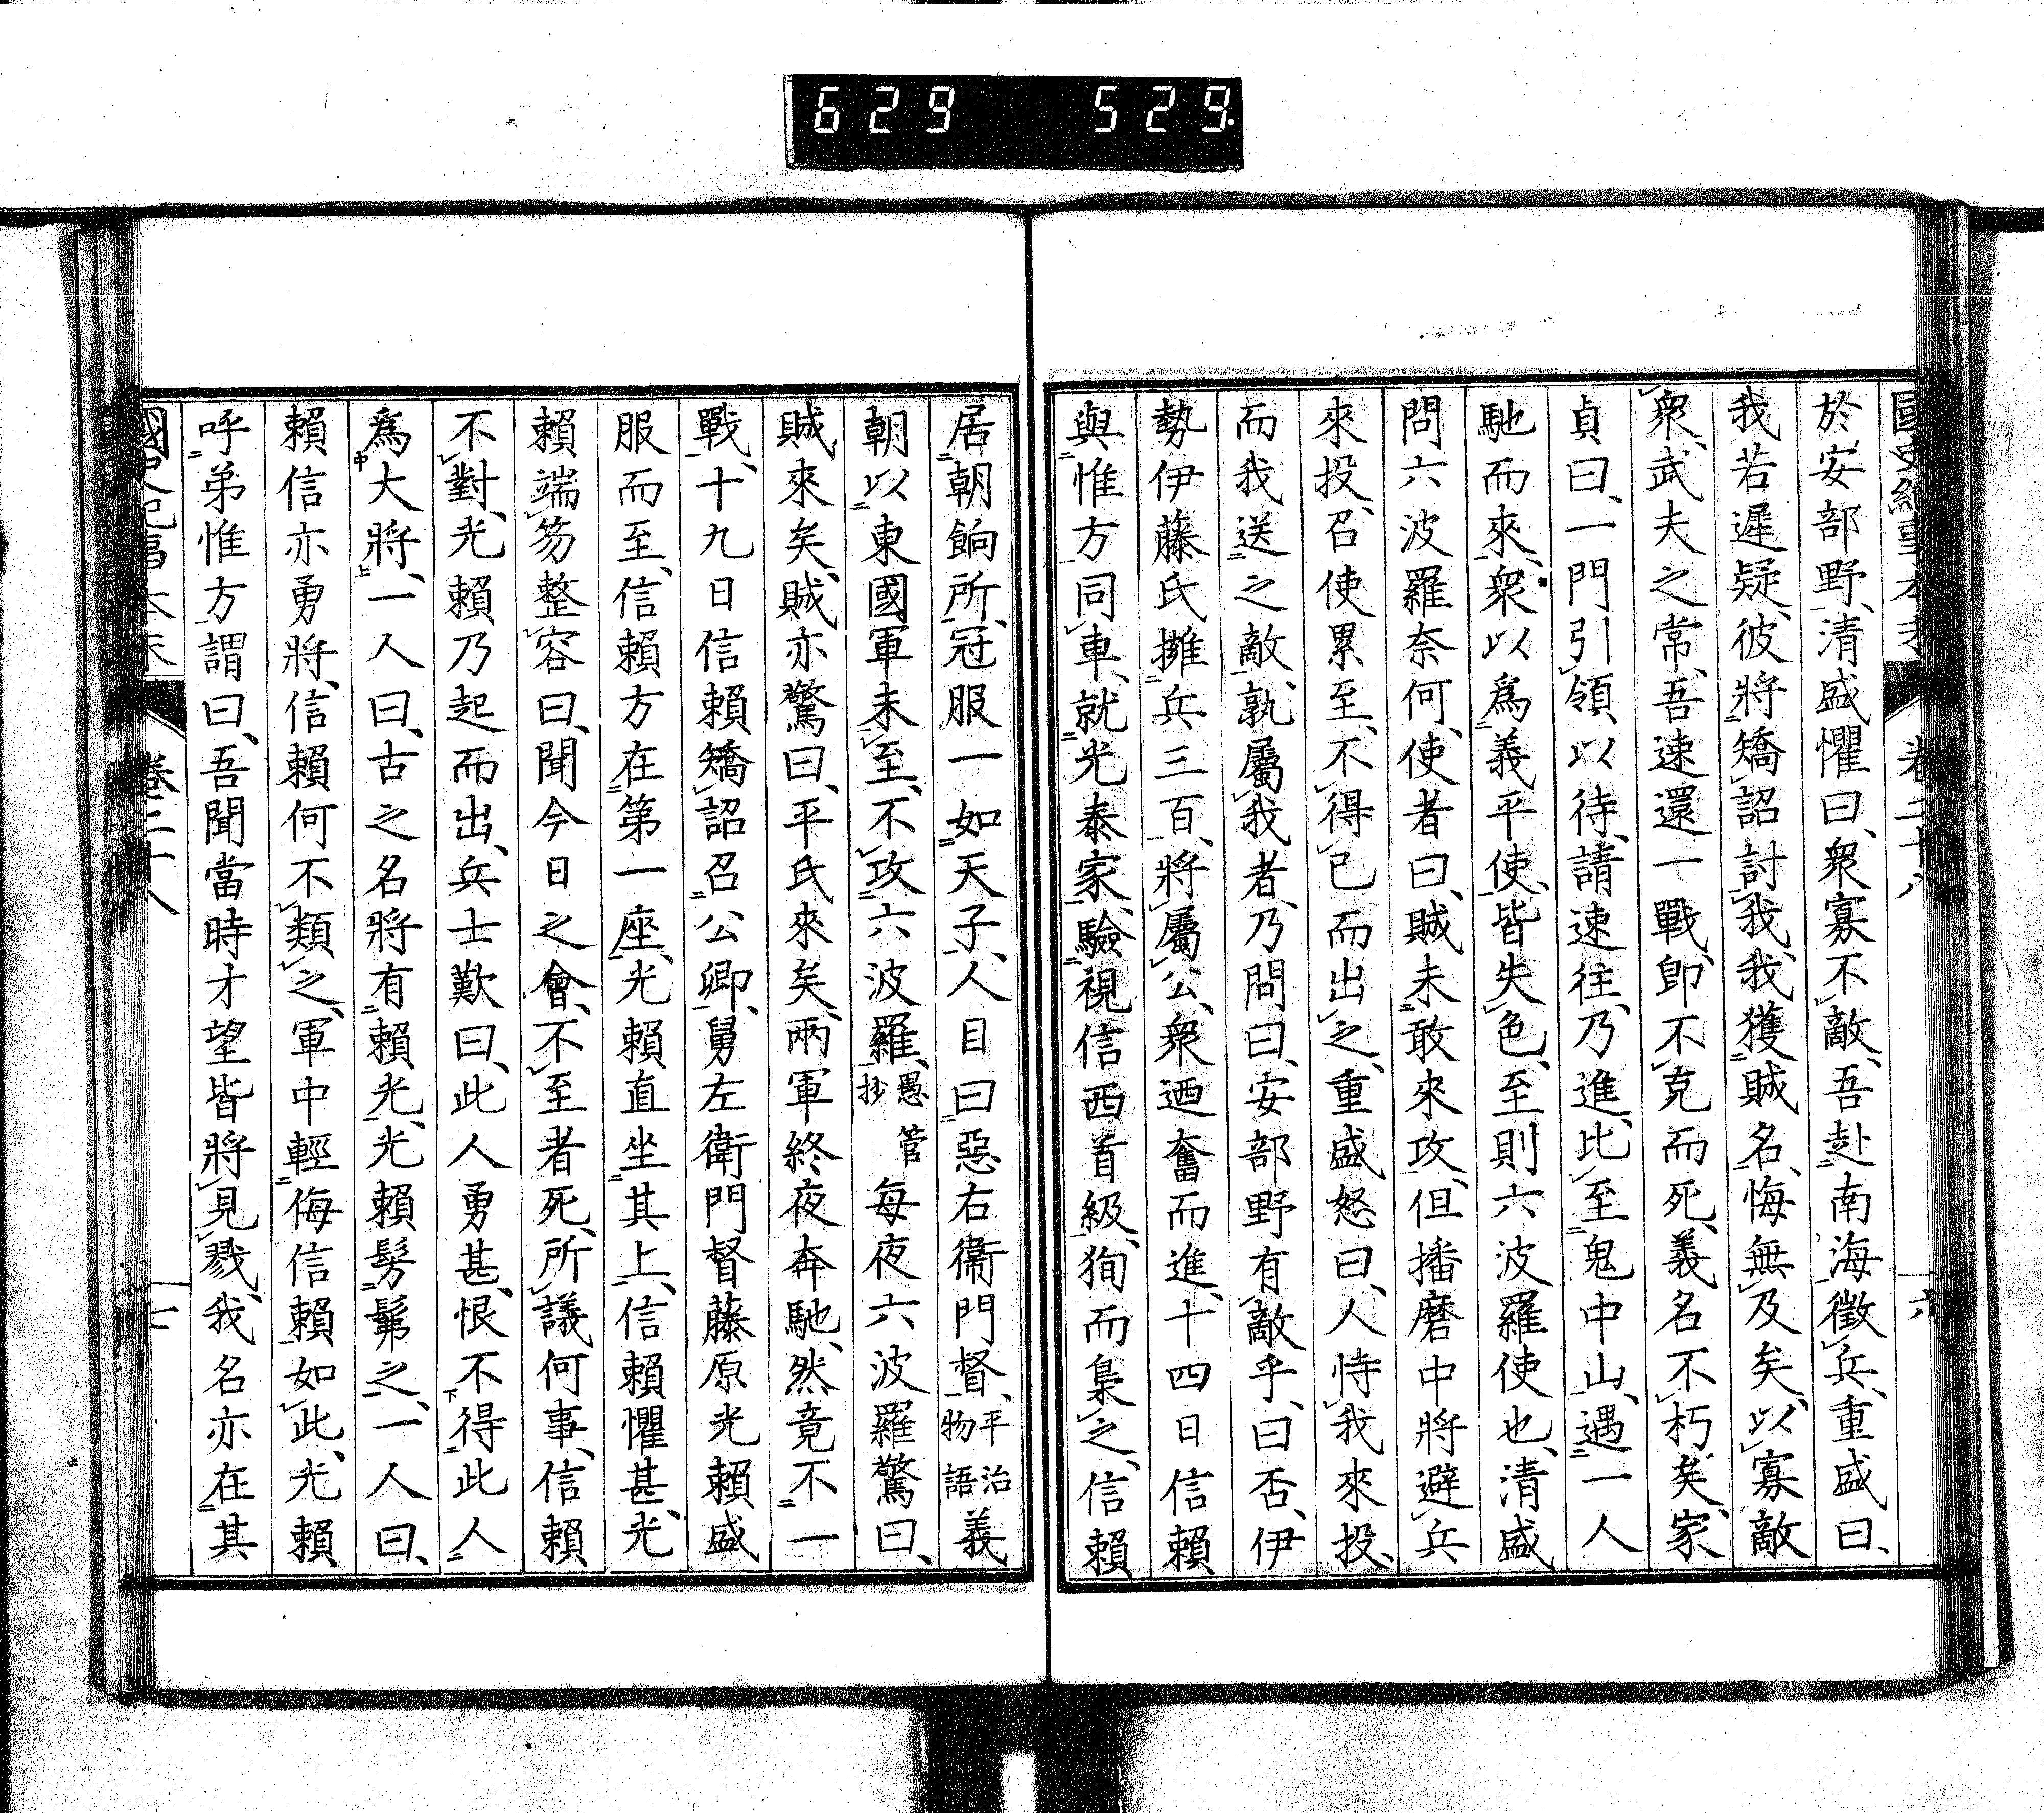 629 529.
國史紀事本末 卷二十八 六
於安部野、清盛懼曰、衆寡不敵、吾赴南海徵兵、重盛曰、
我若遲疑、彼將矯詔討我、我獲賊名、悔無及矣、以寡敵
衆、武夫之常、吾速還一戰、卽不克而死、義名不朽矣、家
貞曰、一門引領以待、請速往、乃進、比至鬼中山、遇一人
馳而來、衆以爲義平使、皆失色、至則六波羅使也、清盛
問六波羅奈何、使者曰、賊未敢來攻、但播磨中將避兵
來投、召使累至、不得已而出之、重盛怒曰、人恃我來投、
而我送之敵、孰屬我者、乃問曰、安部野有敵乎、曰否、伊
勢伊藤氏擁兵三百、將屬公、衆迺奮而進、十四日信賴
與惟方同車、就光泰家、驗視信西首級、狥而梟之、信賴
居朝餉所、冠服一如天子、人目曰惡右衞門督、平治物語義
朝以東國軍未至、不攻六波羅、愚管抄每夜六波羅驚曰、
賊來矣、賊亦驚曰、平氏來矣、兩軍終夜奔馳、然竟不一
戰、十九日信賴矯詔召公卿、舅左衞門督藤原光賴盛
服而至、信賴方在第一座、光賴直坐其上、信賴懼甚、光
賴端笏整容曰、聞今日之會、不至者死、所議何事、信賴
不對、光賴乃起而出、兵士歎曰、此人勇甚、恨不得此人
爲大將、一人曰、古之名將有賴光、光賴髣髴之、一人曰、
賴信亦勇將、信賴何不類之、軍中輕侮信賴如此、光賴
呼弟惟方謂曰、吾聞當時才望皆將見戮、我名亦在其
國史紀事本末 卷二十八 七